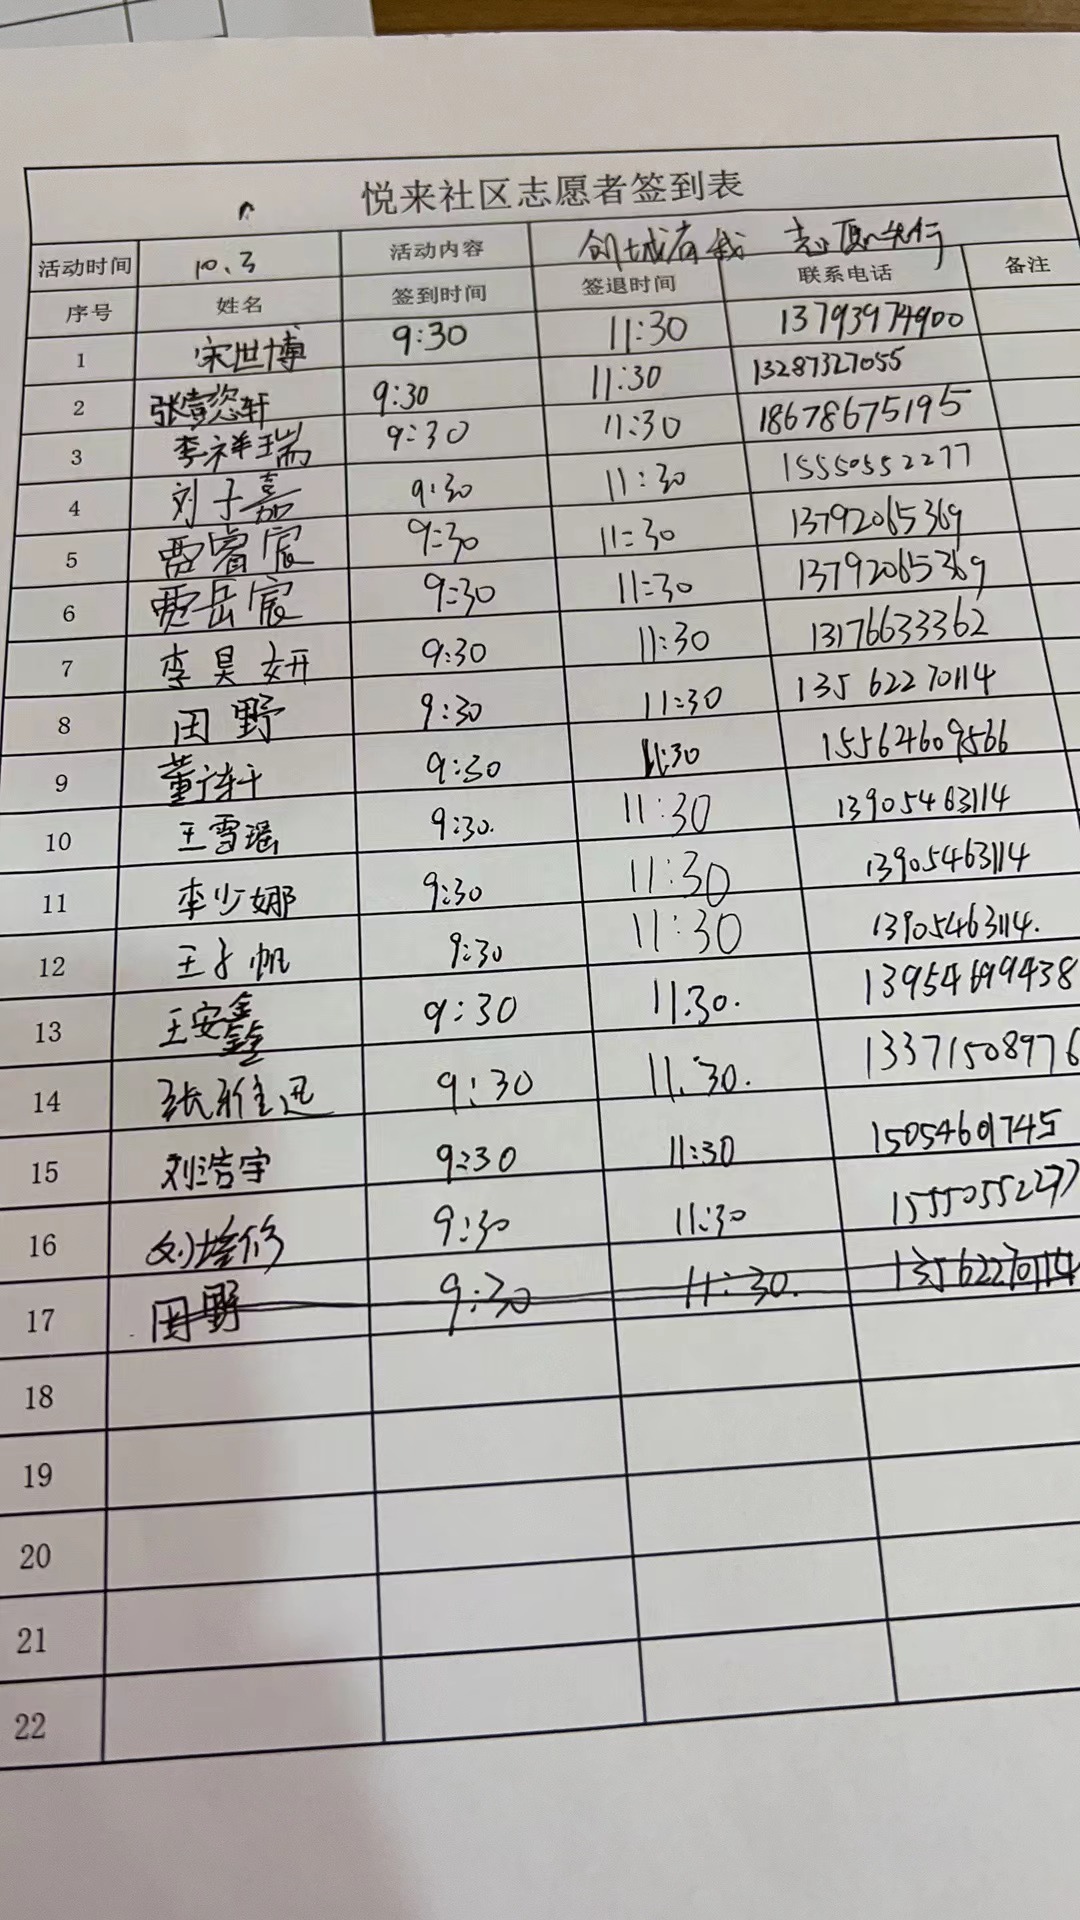 悦来社区志愿者签到表
活动时间 10.3 活动内容 创城有我 志愿先行
序号 姓名 签到时间 签退时间 联系电话 备注
1 宋世博 9:30 11:30 13793974900
2 张壹您轩 9:30 11:30 13287327055
3 李祥瑞 9:30 11:30 18678675195
4 刘子嘉 9:30 11:30 15550552277
5 贾睿宸 9:30 11:30 13792065369
6 贾岳宸 9:30 11:30 13792065369
7 李昊妍 9:30 11:30 13176633362
8 田野 9:30 11:30 13562270114
9 董轩 9:30 11:30 15564609566
10 王雪瑶 9:30. 11:30 13905463114
11 李少娜 9:30 11:30 13905463114
12 王子帆 9:30 11:30 13905463114.
13 王安鑫 9:30 11:30. 13954699438
14 张雅迅 9:30 11:30. 13371508976
15 刘浩宇 9:30 11:30 15054601745
16 刘培修 9:30 11:30 15550552277
17 田野 9:30 11:30. 13562270114
18
19
20
21
22